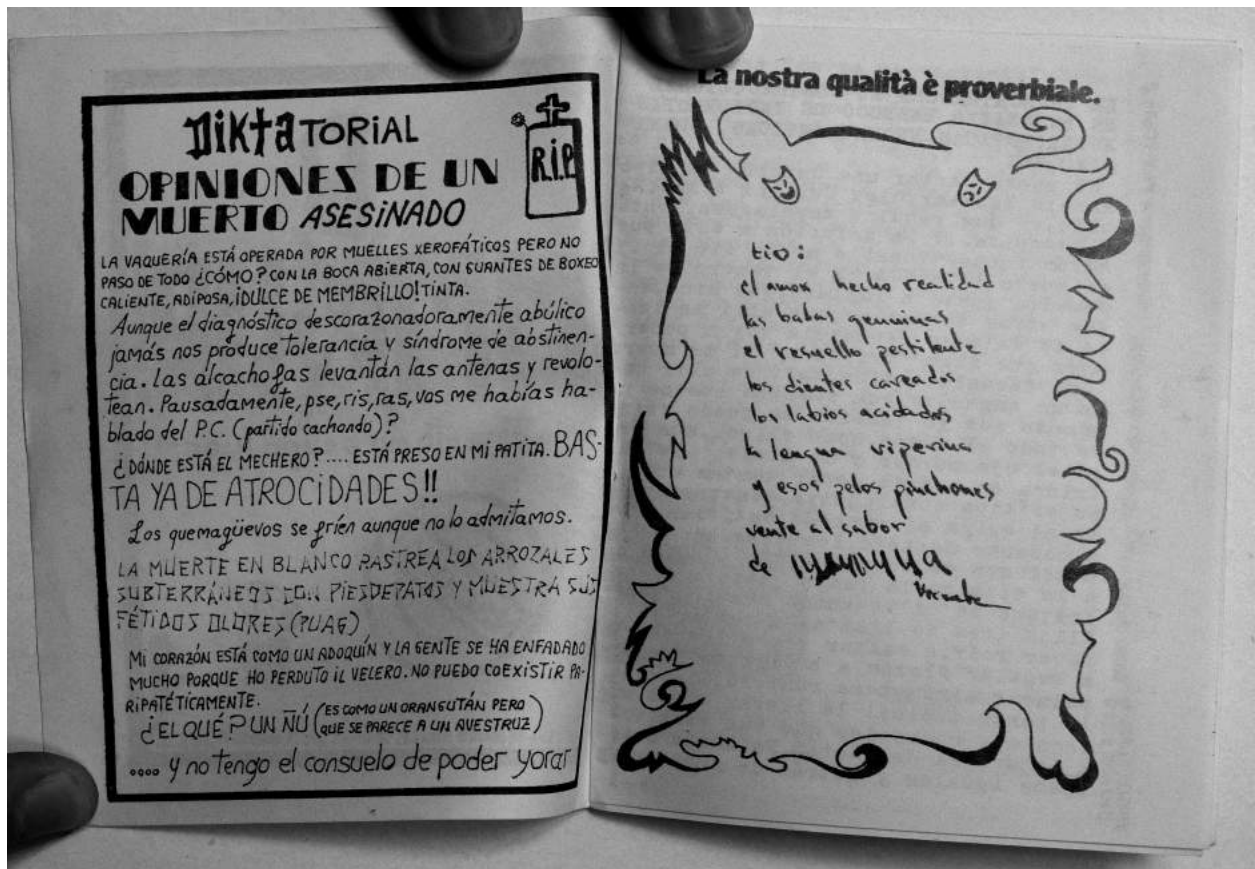 DiktaTORiAL
OPINIONES DE UN
MUERTO ASESiNADO
R.i.P
LA VAQUERÍA ESTÁ OPERADA POR MUELLES XEROFÁTICOS PERO NO
PASO DE TODO ¿CÓMO? CON LA BOCA ABIERTA, CON GUANTES DE BOXEO
CALIENTE, ADIPOSA, ¡DULCE DE MEMBRILLO! TINTA.
Aunque el diagnóstico descorazonadoramente abúlico
jamás nos produce tolerancia y síndrome de abstinen-
cia. Las alcachofas levantan las antenas y revolo-
tean. Pausadamente, pse, ris, ras, vas me habías ha-
blado del P.C. (partido cachondo)?
¿DÓNDE ESTÁ EL MECHERO?.... ESTÁ PRESO EN Mi PATITA. BAS-
TA YA DE ATROCiDADES!!
Los quemagüevos se fríen aunque no lo admitamos.
LA MUERTE EN BLANCO RASTREA LOS ARROZALES
SUBTERRÁNEOS CON PIESDEPATOS Y MUESTRA SUS
FÉTIDOS OLORES (PUAG)
Mi CORAZÓN ESTÁ COMO UN ADOQUÍN Y LA GENTE SE HA ENFADADO
MUCHO PORQUE HO PERDUTO iL VELERO. NO PUEDO COEXISTIR PA-
RiPATÉTiCAMENTE.
¿EL QUÉ? UN ÑÚ (ES COMO UN ORANGUTÁN PERO
QUE SE PARECE A UN AVESTRUZ)
.... y no tengo el consuelo de poder yorar
La nostra qualità è proverbiale.
tio:
el amor hecho realidad
las babas genuinas
el resuello pestilente
los dientes careados
los labios acidados
la lengua viperina
y esos pelos pinchones
vente al sabor
de